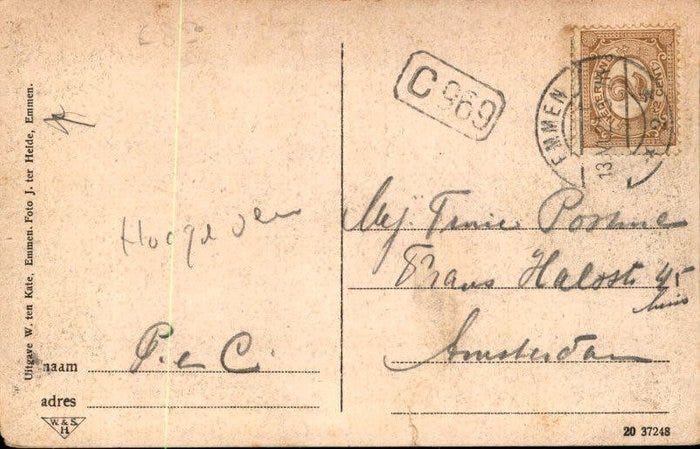 Uitgave W. ten Kate, Emmen. Foto J. ter Heide, Emmen.
C 969
EMMEN
13
NEDERLAND
2½
CENT
Mej. Trinie Postma
Frans Halsstr 45
huis
Amsterdam
Hoogeveen
naam P. e C.
adres
W. & S.
H
20 37248